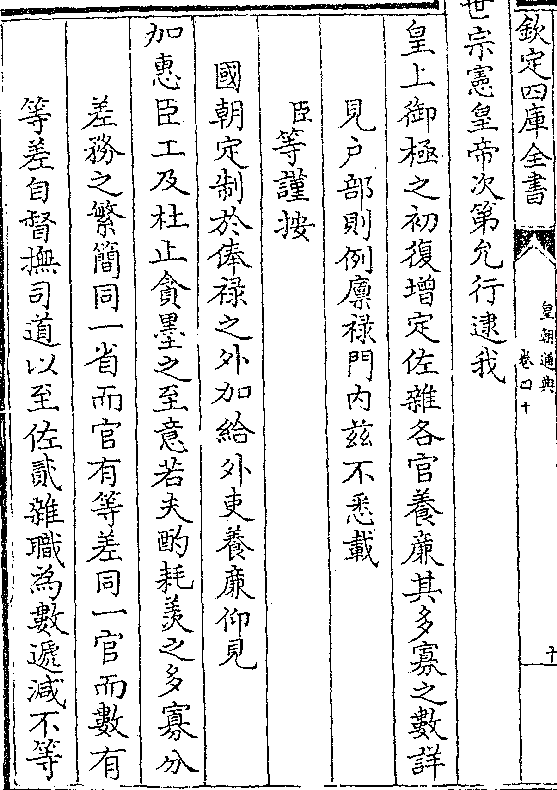 欽定四庫全書
皇朝通典
卷四十
十
世宗憲皇帝次第允行逮我
皇上御極之初復增定佐雜各官養廉其多寡之數詳
見戶部則例廪祿門内兹不悉載
臣等謹按
國朝定制於俸祿之外加給外吏養廉仰見
加惠臣工及杜止貪墨之至意若夫酌耗羨之多寡分
差務之繁簡同一省而官有等差同一官而數有
等差自督撫司道以至佐貳雜職為數遞減不等